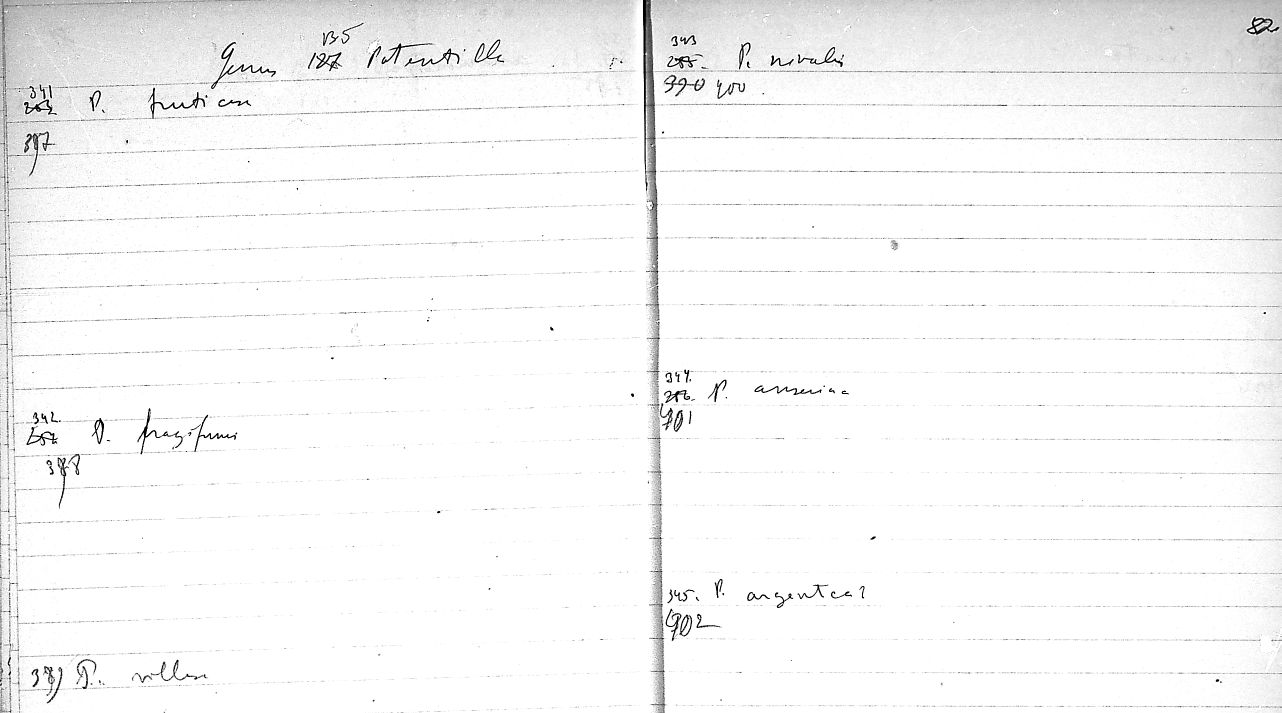 135
Genus 127 Potentilla
341
P. fruticosa
397
342.
P. fragiformis
398
399 P. villosa
82
343
285. P. nivalis
390 400.
344.
286. P. anserina
401
345. P. argentea?
402